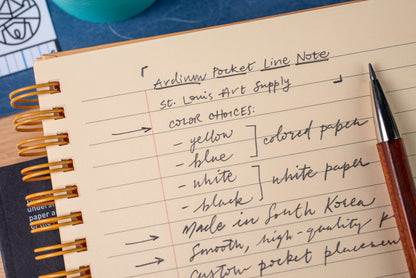 Ardium Pocket Line Note
St. Louis Art Supply
COLOR CHOICES:
- yellow
- blue ] colored paper
- white
- black ] white paper
→ Made in South Korea
→ Smooth, high-quality
→ Custom pocket placement
under
paper